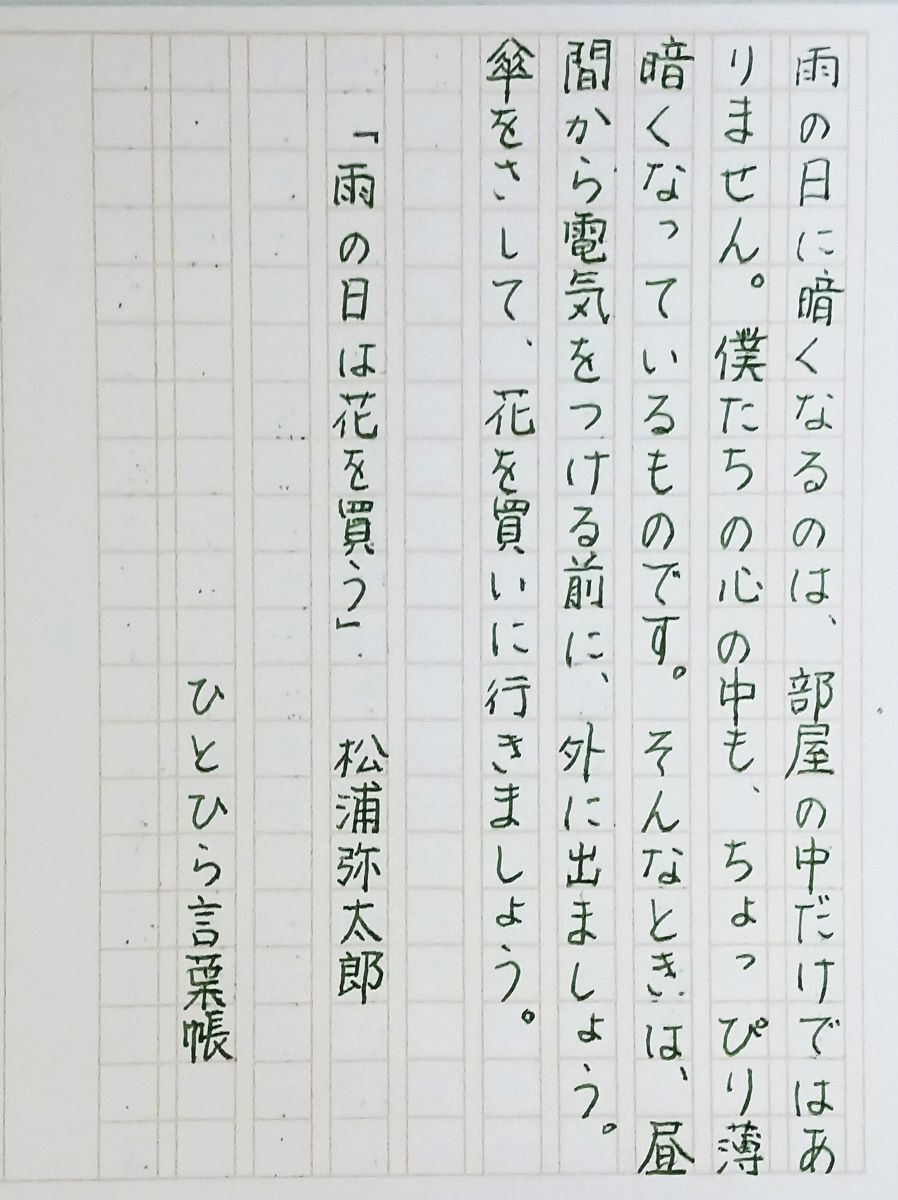 雨の日に暗くなるのは、部屋の中だけではあ
りません。僕たちの心の中も、ちょっぴり薄
暗くなっているものです。そんなときは、昼
間から電気をつける前に、外に出ましょう。
傘をさして、花を買いに行きましょう。
「雨の日は花を買う」 松浦弥太郎
ひとひら言葉帳